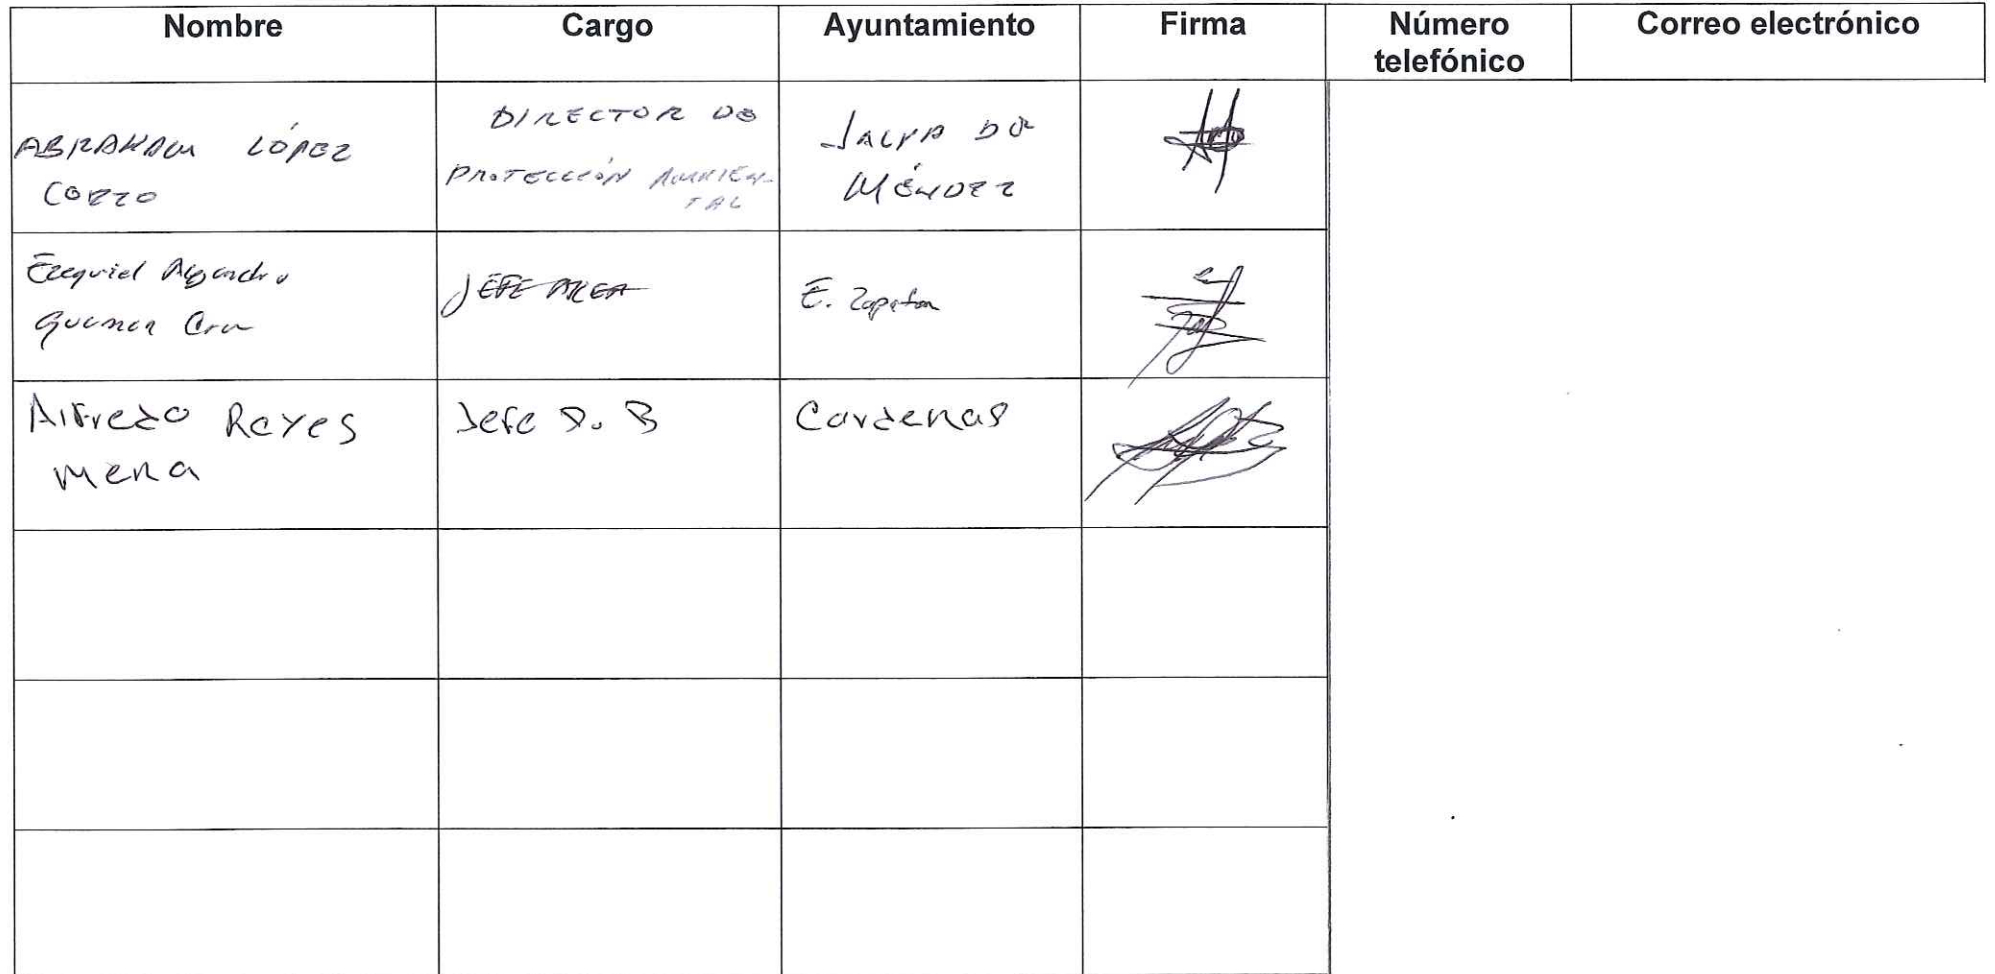 Nombre Cargo Ayuntamiento Firma Número Correo electrónico
telefónico
ABRAHAM LÓPEZ
CORZO
DIRECTOR DE
PROTECCIÓN AMBIEN-
TAL
JALPA DE
MÉNDEZ
Ezequiel Alejandro
Cruz
JEFE AREA
E. Zapata
Alfredo Reyes
Mena
Jefe D. B
Cardenas